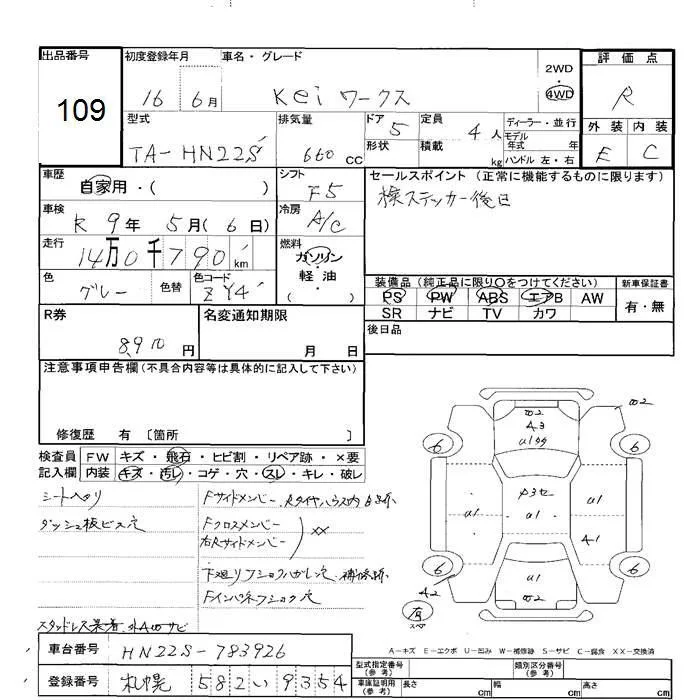 出品番号
109
初度登録年月
16 6月
車名・グレード
Kei ワークス
2WD
4WD
評価点
R
型式
TA-HN22S
排気量
660 CC
ドア 5
形状
定員 4人
積載 kg
ディーラー・並行
モデル
年式 年
ハンドル 左・右
外装 内装
E C
車歴
自家用・( )
シフト
F5
セールスポイント (正常に機能するものに限ります)
検ステッカー後日
車検
R 9年 5月 (6日)
冷房
A/C
走行
14万0千790km
燃料
ガソリン
・
軽油
( )
色
グレー
色替
色コード
ZY4
装備品 (純正品に限り〇をつけてください)
PS PW ABS エアB AW
SR ナビ TV カワ
新車保証書
有・無
後日品
R券
8,910円
名変通知期限
月 日
注意事項申告欄 (不具合内容等は具体的に記入して下さい)
修復歴 有 〔箇所 〕
検査員
記入欄
FW キズ・飛石・ヒビ割・リペア跡・×要
内装 キズ・汚レ・コゲ・穴・スレ・キレ・破レ
シートヘタリ
ダッシュ板ビス穴
Fサイドメンバー、
Fクロスメンバー
右Rサイドメンバー
XX
補修跡
Fインパネフショク穴
スタッドレス装着、
車台番号
HN22S-783926
登録番号
札幌 582い9354
W2
W2
A3
U1
6
6
U1
U1
U1
A1
6
6
A2
U1
W2
有
スペア
A=キズ E=エクボ U=凹み W=補修跡 S=サビ C=腐食 XX=交換済
型式指定番号
(参考)
類別区分番号
(参考)
車庫証明用
(参考)
長さ cm
幅 cm
高さ cm